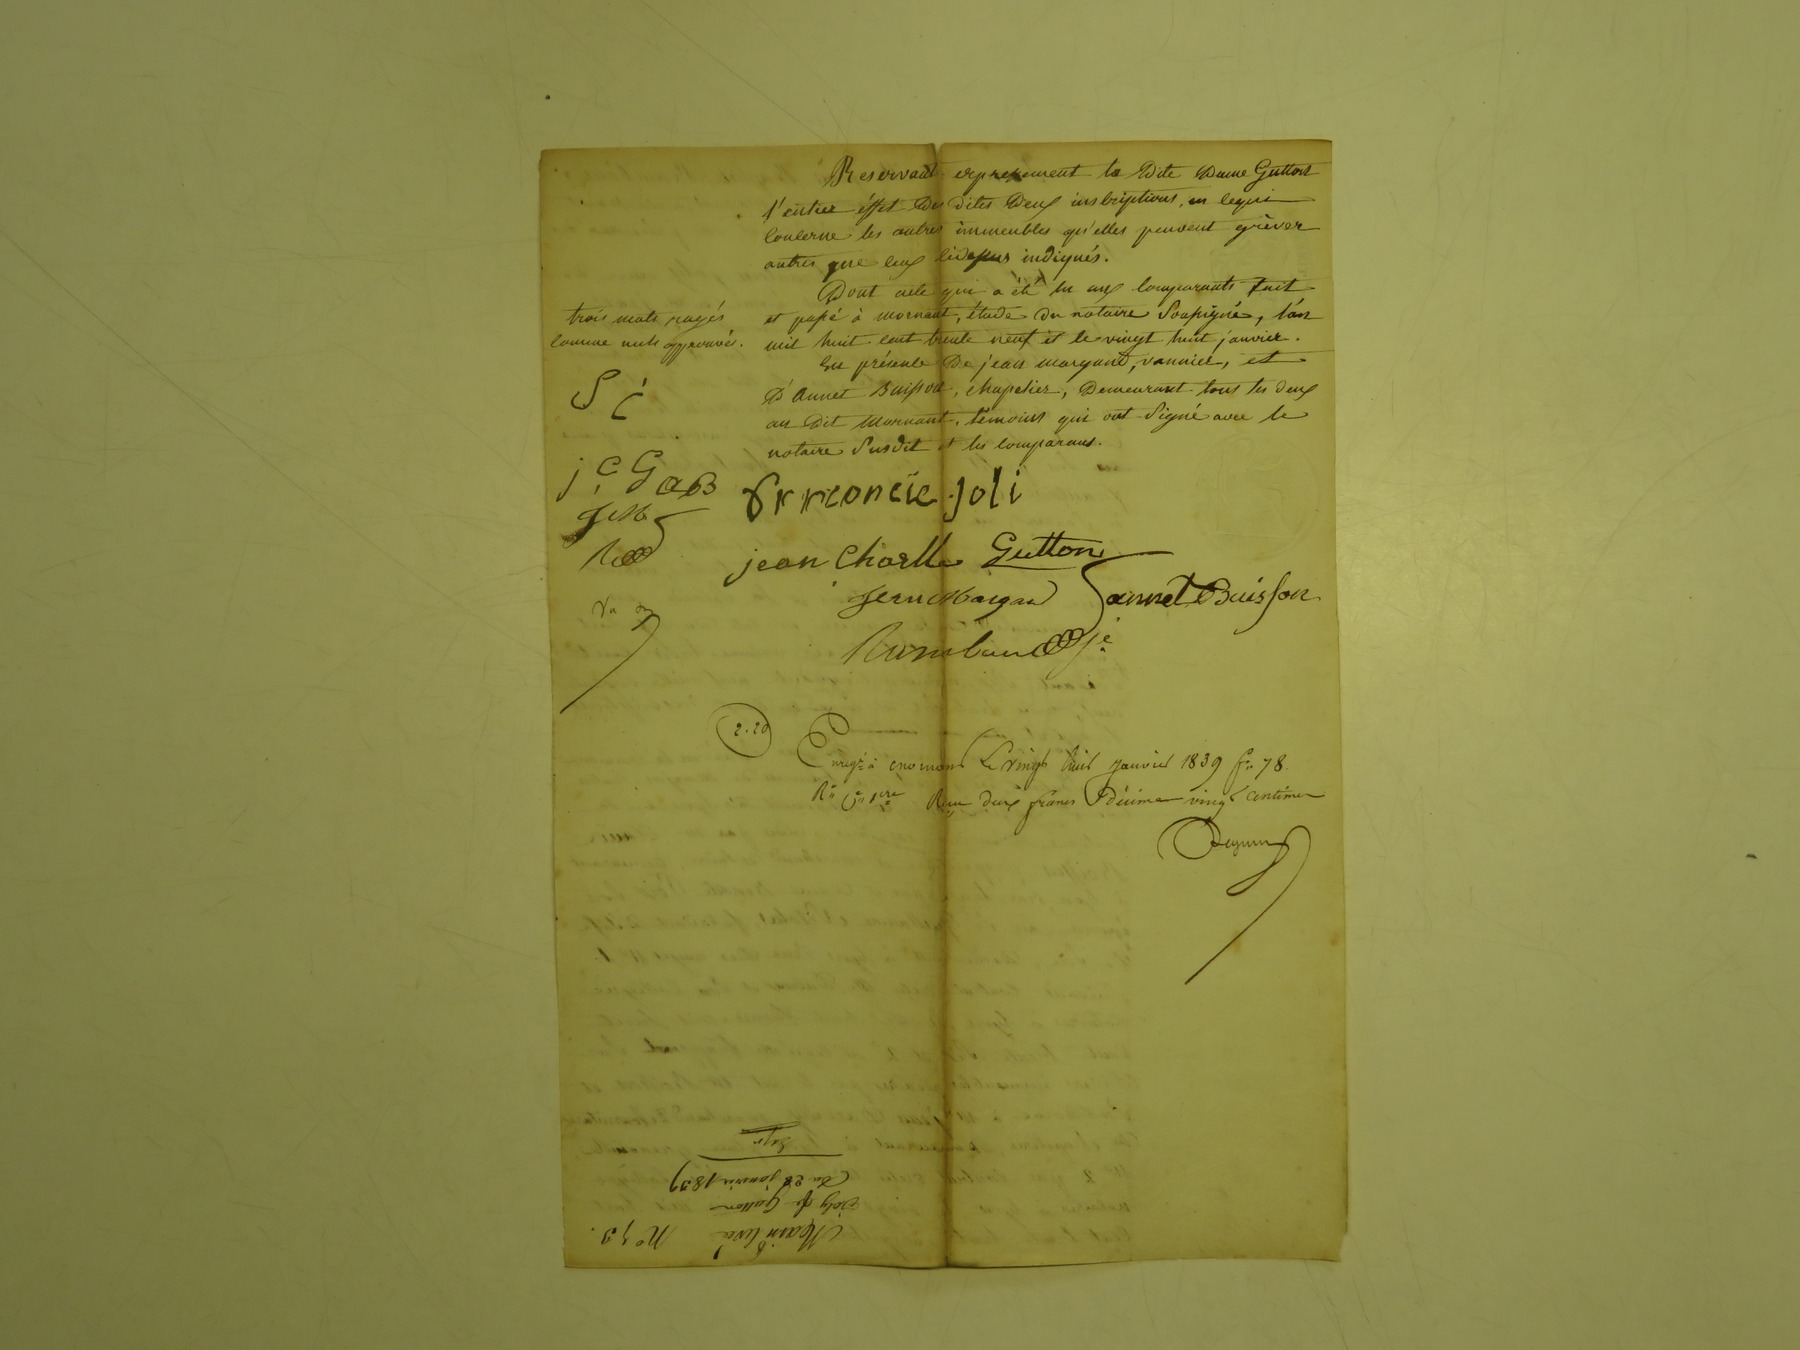 Reservant expressement la Dite Dame Gutton
l'entier éffet des dites Deux inscriptions, en ce qui
concerne les autres immeubles qu'elles peuvent grèver
autres que ceux cidessus indiqués.
Dont acte qui a été lu aux comparants fait
et passé à mornant, étude du notaire Soussigné, l'an
mil huit cent trente neuf et le vingt huit janvier.
En présence De jean margand, vannier, et
D'annet Buisson, chapelier, Demeurant tous les deux
au dit mornant, témoins qui ont Signé avec le
notaire Susdit et les comparans.
trois mots rayés
comme nuls approuvés.
j C G a B
joli
jean Charlle Gutton
annet Buisson
2.20
Enreg.é à mornant Le vingt huit janvier 1839 f.o 78
R.o Reçu deux francs Décime vingt Centimes
N.o 53.
Main levée
Joly f.e Gutton
Du 28 janvier 1839